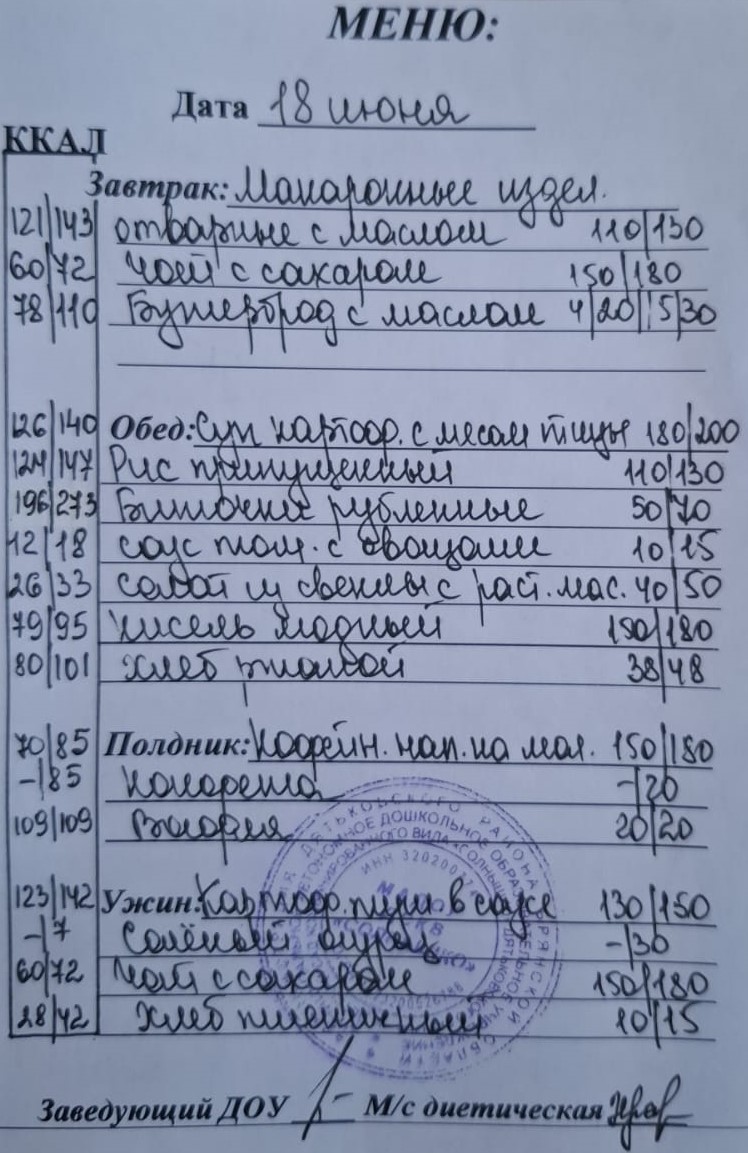 МЕНЮ:
Дата 18 июня
ККАЛ
Завтрак: Макаронные издел.
121/143 отварные с маслом 110/130
60/72 Чай с сахаром 150/180
78/110 Бутерброд с маслом 4/20 5/30
126/140 Обед: Суп картоф. с мясом птицы 180/200
124/147 Рис припущенный 110/130
196/273 Биточки рубленные 50/70
12/18 соус том. с овощами 10/15
26/33 салат из свеклы с раст. мас. 40/50
79/95 кисель ягодный 150/180
80/101 хлеб ржаной 38/48
70/85 Полдник: Кофейн. нап. на мол. 150/180
-/85 -/20
109/109 Вафля 20/20
123/142 Ужин: Картоф. пюре в соусе 130/150
-/7 Солёный огурец -/30
60/72 Чай с сахаром 150/180
28/42 Хлеб пшеничный 10/15
Заведующий ДОУ М/с диетическая